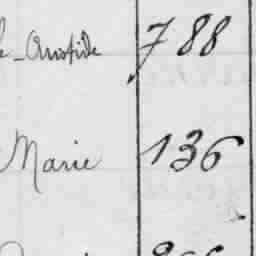 Aristide 788
Marie 136